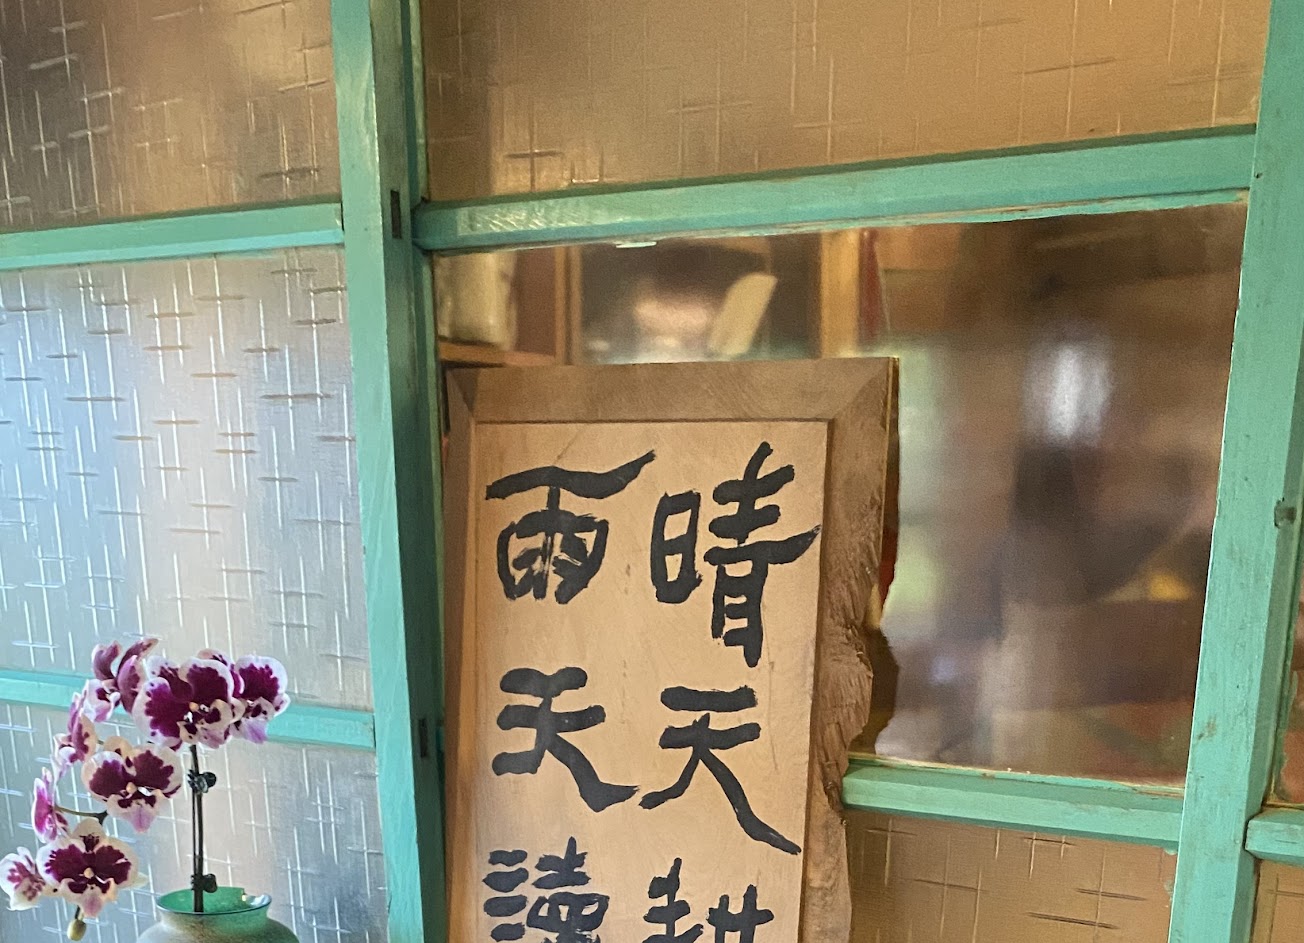 晴天耕
雨天讀